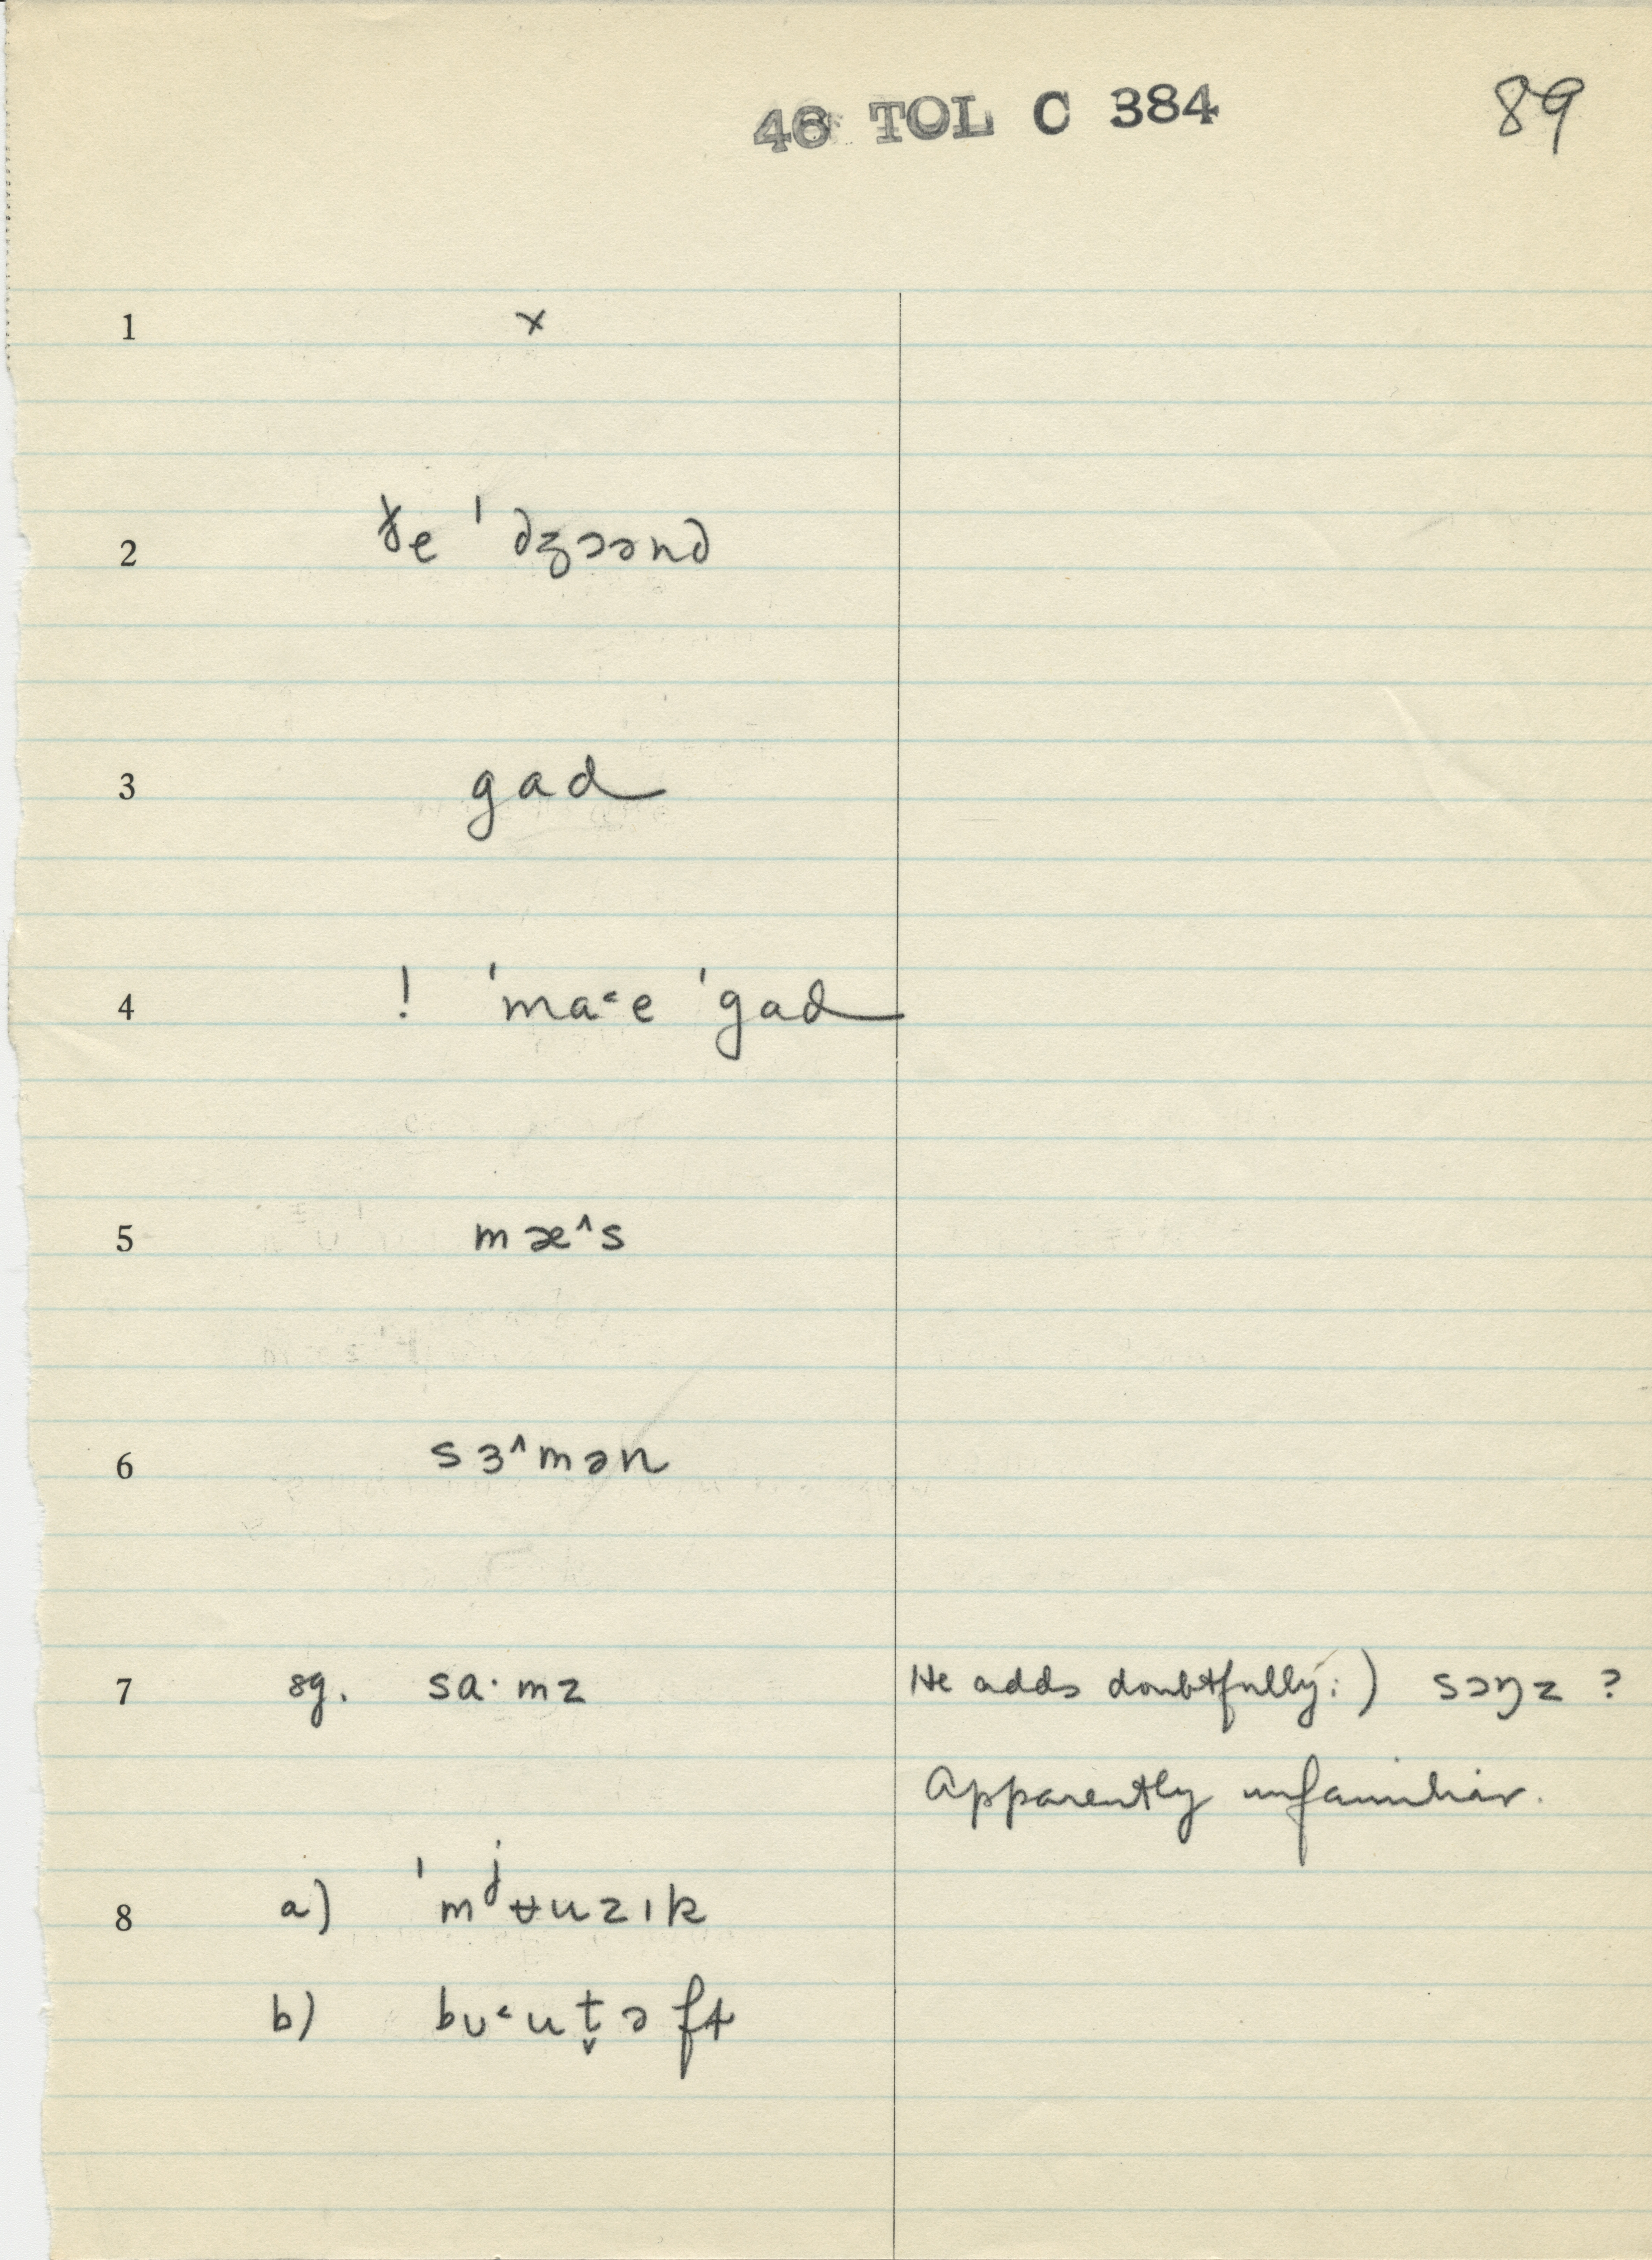 46 TOL C 384 89
1 ×
2 ɤe ˈdʒɔənd
3 gad
4 ! ˈma˂e ˈgad
5 mæ^s
6 sɜ^mən
7 sg. sa· mz He adds doubtfully:) sɔŋz ?
Apparently unfamiliar.
8 a) ˈmʲʉuzɪk
b) bʊ˂ut̬əfɫ